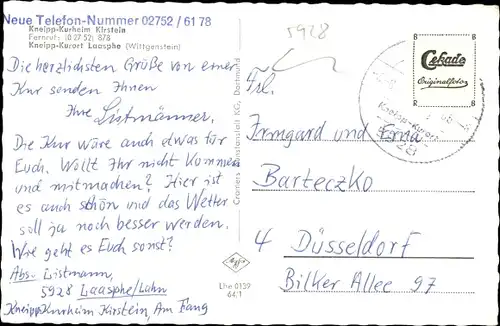 Neue Telefon-Nummer 02752/6178
Kneipp-Kurheim Kirstein
Fernruf: (0 27 52) 878
Kneipp-Kurort Laasphe (Wittgenstein)
5928
Die herzlichsten Grüße von einer
Kur senden Ihnen
Ihre Listmänner.
Die Kur wäre auch etwas für
Euch. Wollt Ihr nicht kommen
und mitmachen? Hier ist
es auch schön und das Wetter
soll ja noch besser werden.
Wie geht es Euch sonst?
Abs. Listmann,
5928 Laasphe/Lahn
Kneipp Kurheim Kirstein, Am Fang
Cramers Kunstanstalt KG, Dortmund
Agfa
Lhe 0159
64/1
B B
Cekade
Originalfoto
B B
Kneipp-Kurort
Frl.
Irmgard und Erna
Barteczko
4 Düsseldorf
Bilker Allee 97